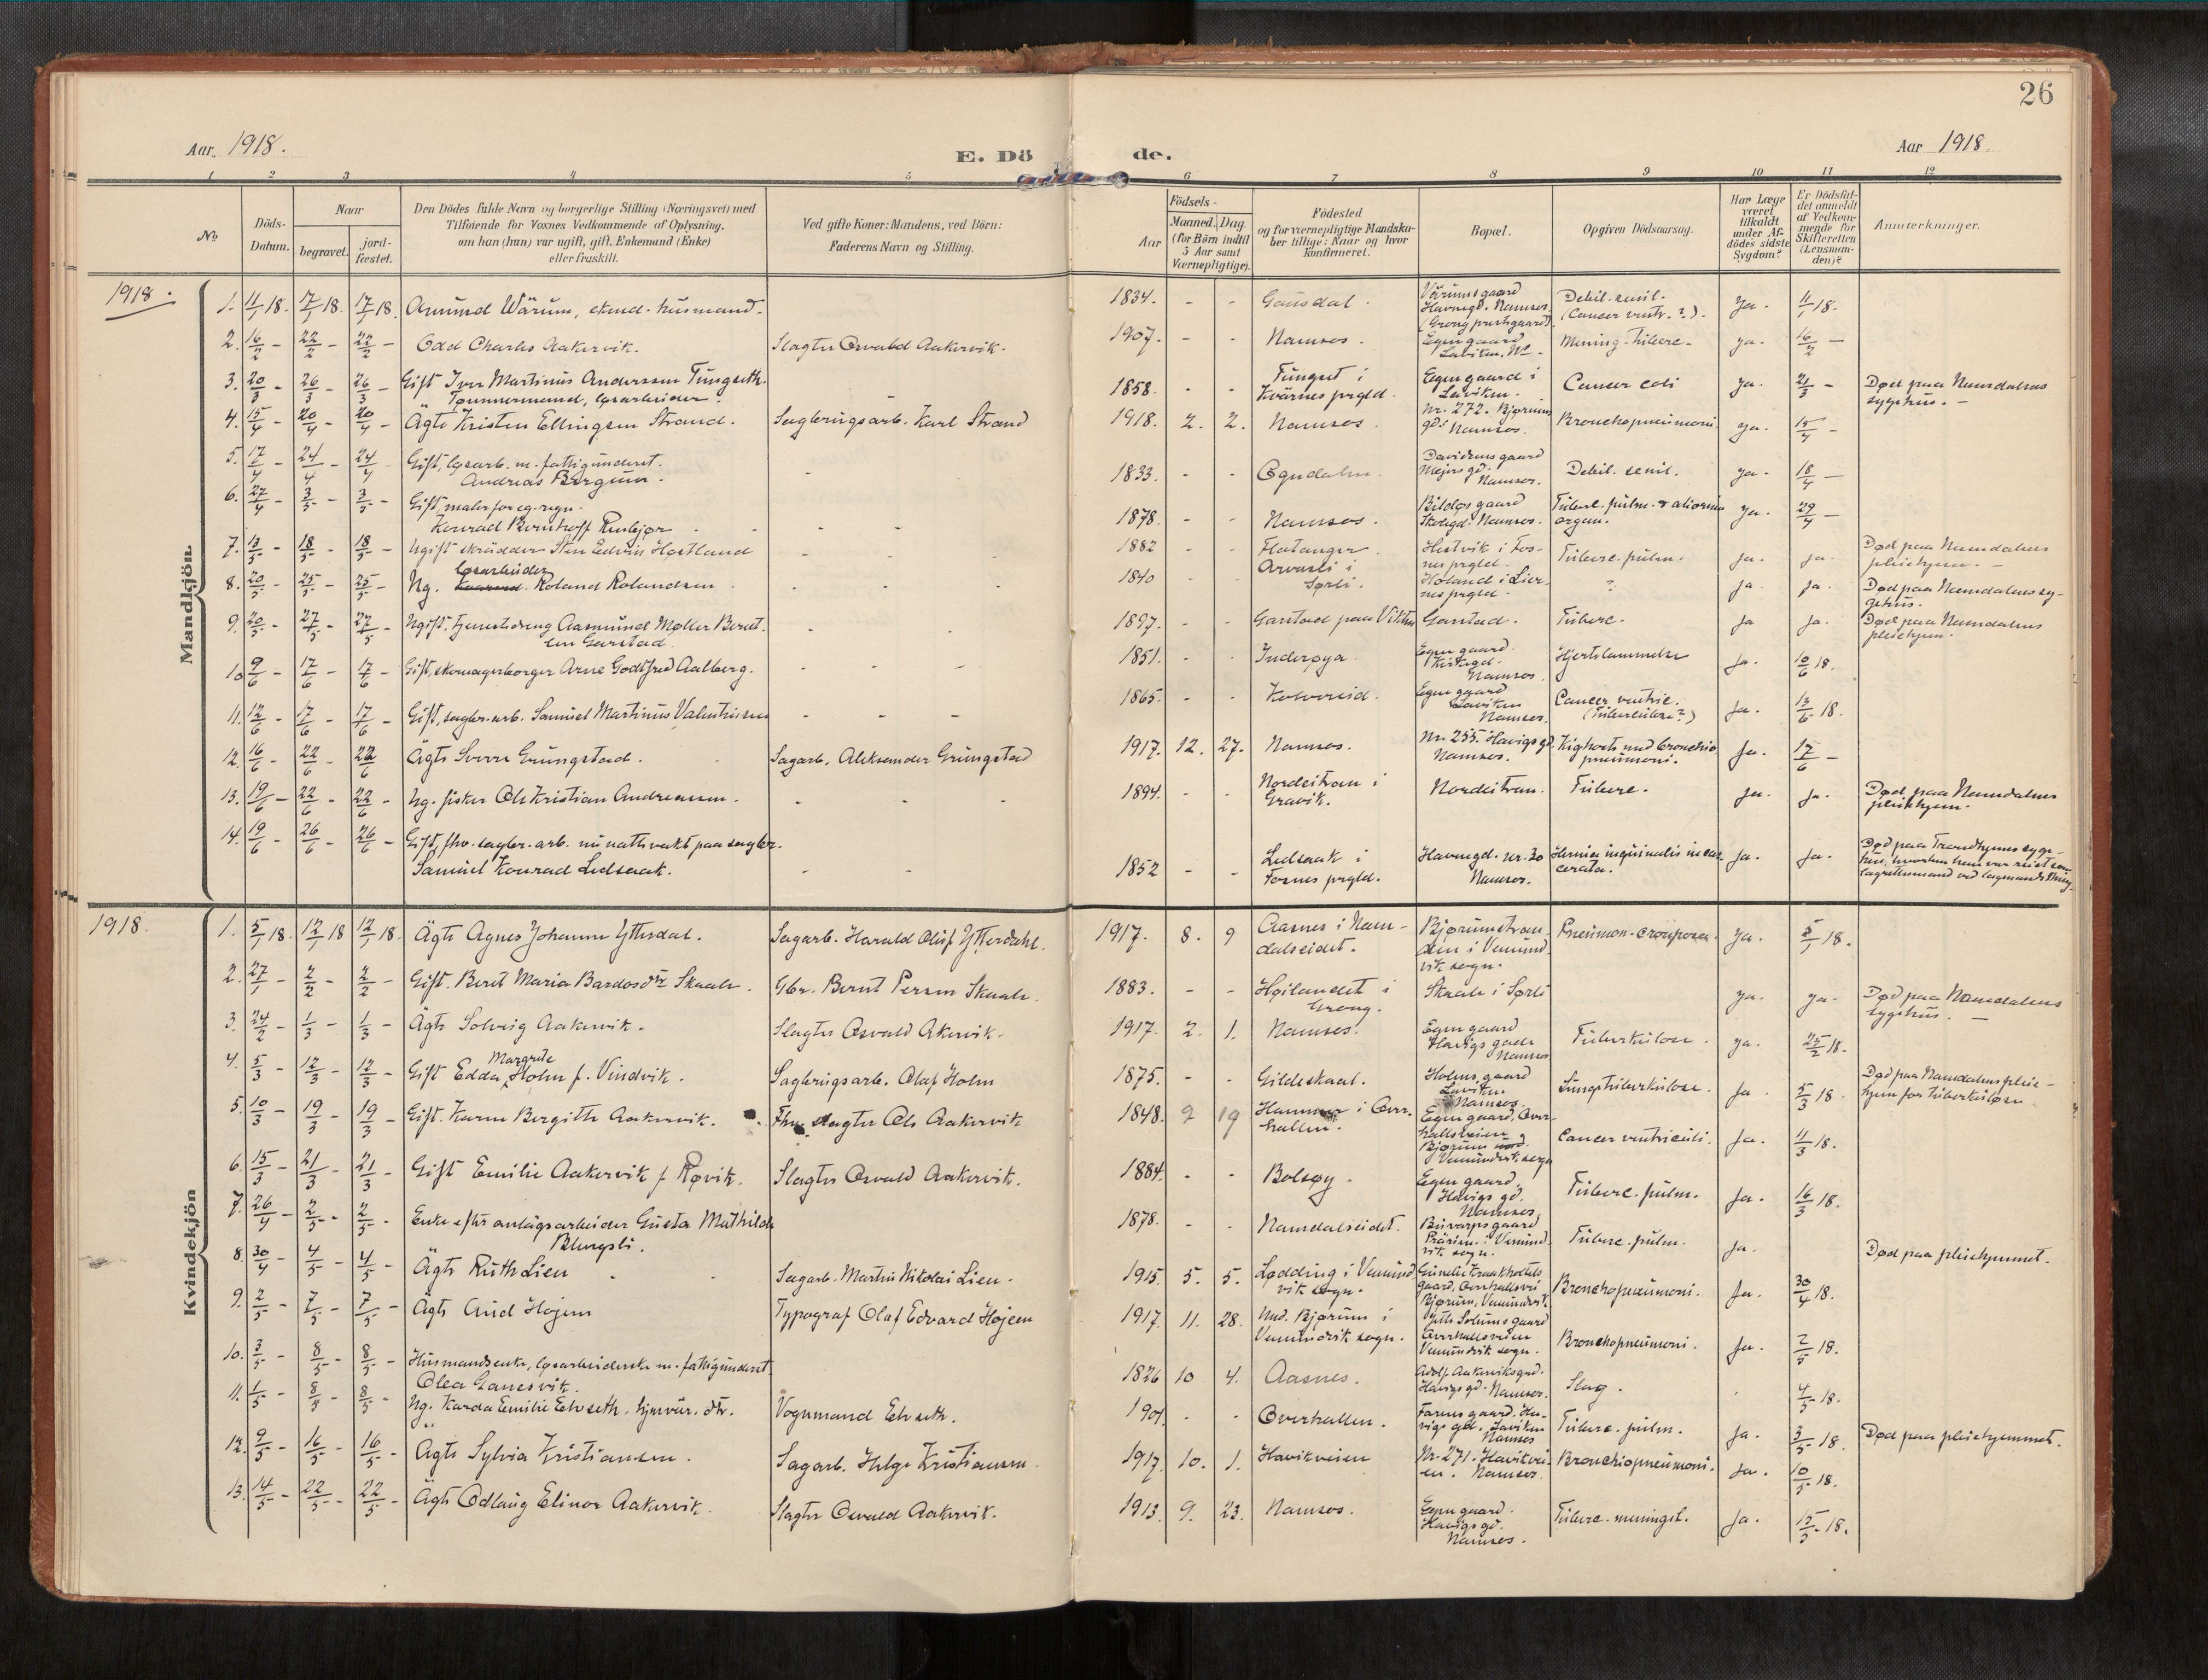 26
Aar. 1918.
E. Dö de.
Aar 1918
1 2 3 4 5 6 7 8 9 10 11 12
No.
Döds-Datum.
Naar
begravet.
jord-fæstet.
Den Dödes fulde Navn og borgerlige Stilling (Næringsvei) med
Tilföiende for Voxnes Vedkommende af Oplysning,
om han (hun) var ugift, gift, Enkemand (Enke)
eller fraskilt.
Ved gifte Koner: Mandens, ved Börn:
Faderens Navn og Stilling.
Födsels-
Aar
Maaned. Dag.
(for Börn indtil
5 Aar samt
Værnepligtige).
Födested
og for værnepligtige Mandska-
ber tillige: Naar og hvor
konfirmeret.
Bopæl.
Opgiven Dödsaarsag.
Har Læge
været
tilkaldt
under Af-
dödes sidste
Sygdom?
Er Dödsfal-
det anmeldt
af Vedkom-
mende for
Skifteretten
(Lensman-
den)?
Anmærkninger.
Mandkjön
1918.
1. 11/1 18. 17/1 18. 17/1 18. Amund Wärum, husmand. 1834. - - Gausdal. Värumsgaard Havnegd. Namsos. (Grong prestegaard) Debil. senil. (Cancer ventr.?). Ja. 11/1 18.
2. 16/2 - 22/2 - 22/2 - Odd Charles Aakervik. Slagter Osvald Aakervik. 1907. - - Namsos. Egen gaard Laviken, Ns. Mening. Tuberc. ja. 16/2 -
3. 20/3 - 26/3 - 26/3 - Gift Iver Martinus Anderssen Tungseth. Tømmermand, løsarbeider. 1858. - - Tungset i Kvernes prgld. Egen gaard i Laviken. Cancer coli ja. 21/3 - Død paa Namdalens sygehus. -
4. 15/4 - 20/4 - 20/4 - Ägte Kristen Ellingsen Strand. Sagbrugsarb. Karl Strand 1918. 2. 2. Namsos. Nr. 272. Bjørums gd. Namsos. Bronchopneumoni. ja. 15/4 -
5. 17/4 - 24/4 - 24/4 - Gift, løsarb. m. fattigunderst. Andreas Bergum. - - 1833. - - Ogndalen. Davidsens gaard Mejers gd. Namsos. Debil. senil. ja. 18/4 -
6. 27/4 - 3/5 - 3/5 - Gift, maler for eg. regn. Konrad Bernhoff - - 1878. - - Namsos. gaard Skolegd. Namsos. Tuberc. pulm. & aliorum organ. ja. 29/4 -
7. 13/5 - 18/5 - 18/5 - Ugift skrädder Sten Edvin Hestland - - 1882 - - Flatanger. Hestvik i Fosnes prgld. Tuberc. pulm. ja. ja. Død paa Namdalens pleiehjem. -
8. 20/5 - 25/5 - 25/5 - Ug. løsarbeider Roland Rolandsen - - 1840 - - i Sørli. i Liernes prgld. ? ja ja. Død paa Namdalens sygehus.
9. 20/5 - 27/5 - 27/5 - Ugift. tjenestedreng Aasmund Møller Berntsen Garstad. - - 1897. - - Garstad paa Vikten Garstad. Tuberc. Ja ja. Død paa Namdalens pleiehjem.
10. 9/6 - 17/6 - 17/6 - Gift, skomagerborger Arne Godtfred Aalberg. - - 1851. - - Inderøya. Egen gaard. Kirkegd. Namsos. Hjertelammelse Ja. 10/6 18.
11. 12/6 - 17/6 - 17/6 - Gift, sagbr. arb. Samuel Martinus Valentinsen - - - 1865. - - Kolvereid. Egen gaard Laviken Namsos. Cancer ventric. (Tuberculose?) Ja. 13/6 18.
12. 16/6 - 22/6 - 22/6 Ägte Sverre Grungstad. Sagarb. Aleksander Grungstad 1917. 12. 27. Namsos. Nr. 255. Havigs gd. Namsos. Kighoste med bronchiopneumoni. Ja. 17/6 -
13. 19/6 - 22/6 - 22/6 - Ug. fisker Ole Kristian Andreassen. - - - 1894. - - Nordeitran i Gravik. Nordeitran. Tuberc. Ja. Ja. Død paa Namdalens pleiehjem.
14. 19/6 - 26/6 - 26/6 - Gift, fhv. sagbr. arb. nu nattevakt paa sagbr. Samuel Konrad Ledsaak. - - 1852 - - Ledsaak i Fosnes prgld. Havnegd. nr. 30 Namsos. Hernia inguinalis incarcerata. Ja. Ja. Død paa Trondhjems sygehus, hvorhen han var reist som lagrettemand ved lagmandsthing.
Kvindekjön
1918.
1. 5/1 18. 12/1 18 12/1 18. Ägte Agnes Johanne Ytterdal. Sagarb. Harald Oluf Ytterdahl. 1917. 8. 9 Aasnes i Namdalseidet. Bjørumstranden i Vemundvik sogn. Pneumon. crouposa. Ja. 5/1 18.
2. 27/1 - 2/2 - 2/2 - Gift. Beret Maria Bardosdtr Skaale. Gbr. Bernt Persen Skaale. 1883. - - Høilandet i Grong. Skaale i Sørli ja. ja. Død paa Namdalens sygehus. -
3. 24/2 - 1/3 - 1/3 - Ägte Solveig Aakervik. Slagter Osvald Akervik. 1917. 2. 1. Namsos. Egen gaard Havigs gade Namsos Tuberkulose. ja. 25/2 18.
4. 5/3 - 12/3 - 12/3 - Gift Edda Margrete Holm f. Vindvik. Sagbrugsarb. Olaf Holm 1875. - - Gildeskaal. Holms gaard Laviken Namsos Lungetuberkulose. Ja. 5/3 18. Død paa Namdalens pleiehjem for tuberkuløse.
5. 10/3 - 19/3 - 19/3 - Gift. Karen Bergitte Aakervik. Fhv. slagter Ole Aakervik 1848. 9 19 Hammer i Overhallen. Egen gaard, Overhallsveien Bjørum Vemundvik sogn Cancer ventriculi. Ja. 11/3 18.
6. 15/3 - 21/3 - 21/3 - Gift Emilie Aakervik f. Røvik. Slagter Osvald Aakervik. 1884. - - Bolsøy. Egen gaard, Havigs gd. Namsos. Tuberc. pulm. Ja. 16/3 18.
7. 26/4 - 2/5 - 2/5 - Enke efter anlägsarbeider Gusta Mathilde Blengsli. 1878. - - Namdalseidet. Buvarps gaard Prärien i Vemundvik sogn. Tuberc. pulm. Ja. Død paa pleiehjemmet.
8. 30/4 - 4/5 - 4/5 - Ägte Ruth Lien Sagarb. Martin Nikolai Lien. 1915. 5. 5. Lødding i Vemundvik sogn. gaard, Overhallsvei Bjørum, Vemundvik Bronchopneumoni. Ja. 30/4 18.
9. 2/5 - 7/5 - 7/5 - Ägte Aud Højem Typograf Olaf Edvard Højem 1917. 11. 28. Ned. Bjørum i Vemundvik sogn. Solums gaard Overhallsveien Vemundvik sogn. Bronchopneumoni. Ja. 2/5 18.
10. 3/5 - 8/5 - 8/5 - Husmandsenke, løsarbeiderske m. fattigunderst. Olea Lanesvik. 1826 10 4. Aasnes. Adolf Aakerviks gd. Havigs gd. Namsos. Slag. 4/5 18.
11. 1/5 - 8/5 - 8/5 - Ug. Karda Emilie Elvseth, hjemvär. dtr. Vognmand Elvseth. 1901. - - Overhallen. gaard. Havigs gd. Laviken Namsos Tuberc. pulm. Ja. 3/5 18. Død paa pleiehjemmet.
12. 9/5 - 16/5 - 16/5 - Ägte Sylvia Kristiansen. Sagarb. Helge Kristiansen. 1917. 10. 1. Havikveien Nr. 271. Havikveien. Namsos. Bronchiopneumoni. Ja. 10/5 18.
13. 14/5 - 22/5 - 22/5 - Ägte Odlaug Elinor Aakervik. Slagter Osvald Aakervik. 1913. 9. 23. Namsos. Egen gaard. Havigs gd. Namsos. Tuberc. meningit. Ja. 15/5 18.